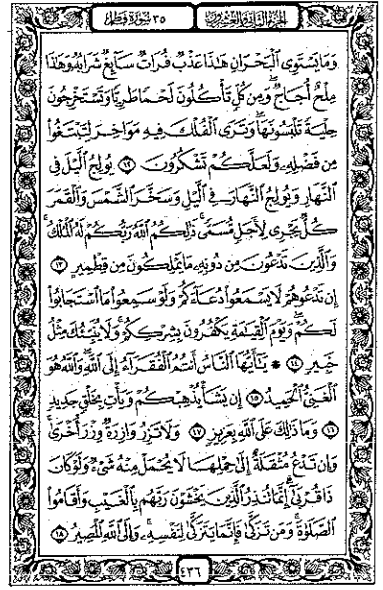 ٣٥ سورة فاطر
الجزء الثاني والعشرون
وَمَا يَسْتَوِي الْبَحْرَانِ هَٰذَا عَذْبٌ فُرَاتٌ سَائِغٌ شَرَابُهُ وَهَٰذَا
مِلْحٌ أُجَاجٌ ۖ وَمِن كُلٍّ تَأْكُلُونَ لَحْمًا طَرِيًّا وَتَسْتَخْرِجُونَ
حِلْيَةً تَلْبَسُونَهَا ۖ وَتَرَى الْفُلْكَ فِيهِ مَوَاخِرَ لِتَبْتَغُوا
مِن فَضْلِهِ وَلَعَلَّكُمْ تَشْكُرُونَ ١٢ يُولِجُ اللَّيْلَ فِي
النَّهَارِ وَيُولِجُ النَّهَارَ فِي اللَّيْلِ وَسَخَّرَ الشَّمْسَ وَالْقَمَرَ
كُلٌّ يَجْرِي لِأَجَلٍ مُّسَمًّى ۚ ذَٰلِكُمُ اللَّهُ رَبُّكُمْ لَهُ الْمُلْكُ ۚ
وَالَّذِينَ تَدْعُونَ مِن دُونِهِ مَا يَمْلِكُونَ مِن قِطْمِيرٍ ١٣
إِن تَدْعُوهُمْ لَا يَسْمَعُوا دُعَاءَكُمْ وَلَوْ سَمِعُوا مَا اسْتَجَابُوا
لَكُمْ ۖ وَيَوْمَ الْقِيَامَةِ يَكْفُرُونَ بِشِرْكِكُمْ ۚ وَلَا يُنَبِّئُكَ مِثْلُ
خَبِيرٍ ١٤ ۞ يَا أَيُّهَا النَّاسُ أَنتُمُ الْفُقَرَاءُ إِلَى اللَّهِ ۖ وَاللَّهُ هُوَ
الْغَنِيُّ الْحَمِيدُ ١٥ إِن يَشَأْ يُذْهِبْكُمْ وَيَأْتِ بِخَلْقٍ جَدِيدٍ
١٦ وَمَا ذَٰلِكَ عَلَى اللَّهِ بِعَزِيزٍ ١٧ وَلَا تَزِرُ وَازِرَةٌ وِزْرَ أُخْرَىٰ ۚ
وَإِن تَدْعُ مُثْقَلَةٌ إِلَىٰ حِمْلِهَا لَا يُحْمَلْ مِنْهُ شَيْءٌ وَلَوْ كَانَ
ذَا قُرْبَىٰ ۗ إِنَّمَا تُنذِرُ الَّذِينَ يَخْشَوْنَ رَبَّهُم بِالْغَيْبِ وَأَقَامُوا
الصَّلَاةَ ۚ وَمَن تَزَكَّىٰ فَإِنَّمَا يَتَزَكَّىٰ لِنَفْسِهِ ۚ وَإِلَى اللَّهِ الْمَصِيرُ ١٨
٤٣٦